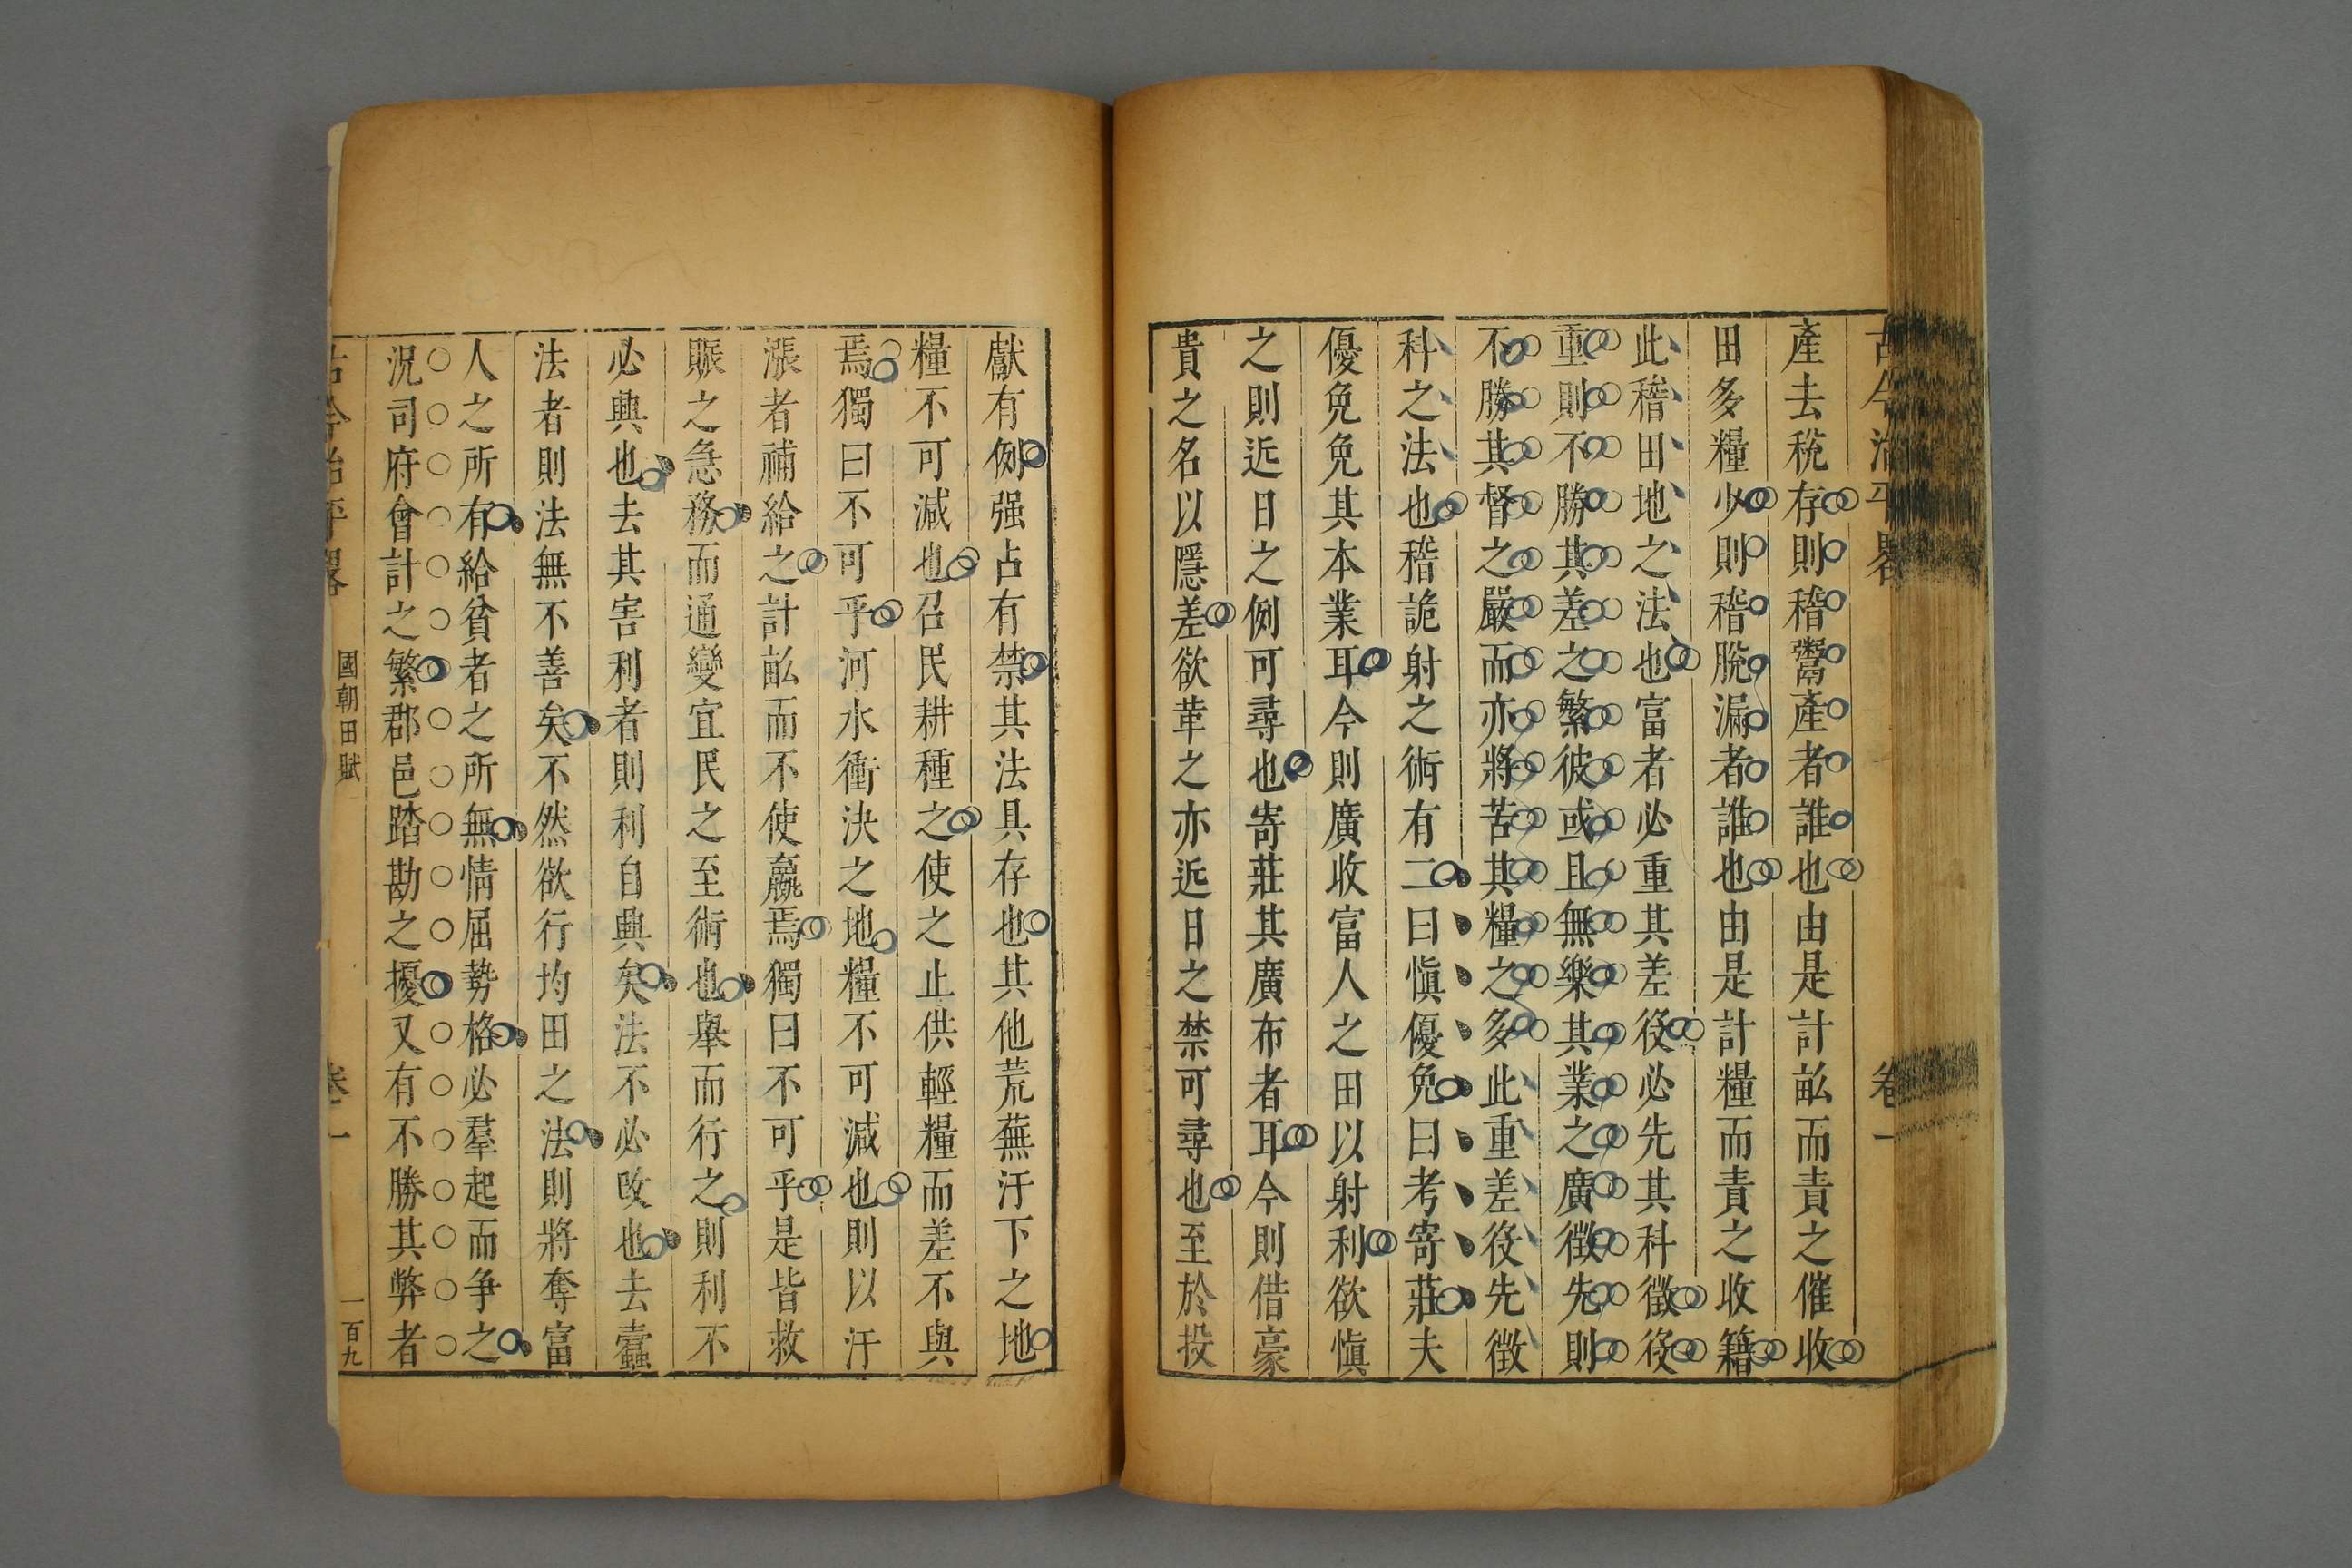 古今治平畧 卷一
產去稅存則稽鬻產者誰也由是計畝而責之催收
田多糧少則稽脫漏者誰也由是計糧而責之收籍
此稽田地之法也富者必重其差役必先其科徵役
重則不勝其差之繁彼或且無樂其業之廣徵先則
不勝其督之嚴而亦將苦其糧之多此重差役先徵
科之法也稽詭射之術有二曰愼優免曰考寄莊夫
優免免其本業耳今則廣收富人之田以射利欲愼
之則近日之例可尋也寄莊其廣布者耳今則借豪
貴之名以隱差欲革之亦近日之禁可尋也至於投
獻有例强占有禁其法具存也其他荒蕪汙下之地
糧不可減也召民耕種之使之止供輕糧而差不與
焉獨曰不可乎河水衝決之地糧不可減也則以汙
漲者補給之計畝而不使嬴焉獨曰不可乎是皆救
賑之急務而通變宜民之至術也舉而行之則利不
必興也去其害利者則利自興矣法不必改也去蠹
法者則法無不善矣不然欲行均田之法則將奪富
人之所有給貧者之所無情屈勢格必羣起而争之
況司府會計之繁郡邑踏勘之擾又有不勝其弊者
古今治平畧 國朝田賦 卷一 一百九